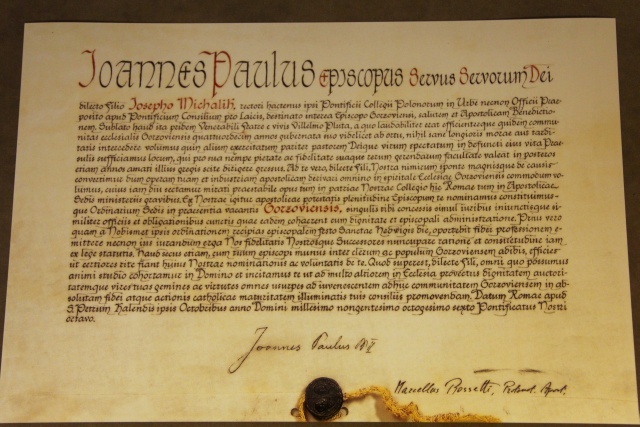 Joannes Paulus episcopus servus servorum Dei
dilecto filio Josepho Michalik, rectori hactenus ipsi Pontificii Collegii Polonorum in Urbe necnon Officii Prae-
posito apud Pontificium Consilium pro Laicis, destinato interea Episcopo Gorzoviensi, salutem et Apostolicam Benedictio-
nem. Sublato haud ita pridem Venerabili Fratre e vivis Villelmo Pluta, qui laudabiliter erat efficienterque quidem commu-
nitas ecclesialis Gorzoviensis quattuordecim annos gubernata nihil sane longioris morae aut tardi-
tatis intercedere volumus quin alium exercitatum pariter pastorem Deique virum spectatum in defuncti eius vita Prae-
sulis sufficiamus locum, qui pro sua nempe pietate ac fidelitate suaque rerum gerendarum facultate valeat in posteros
etiam annos amati illius gregis scite diligere gressus. Ad te vero, dilecte Fili, Nostra nimirum sponte magnisque de causis
convertimus dum operam tuam et industriam apostolicam derivari omnino in Ecclesiae Gorzoviensis commodum vo-
lumus, cuius iam diu rectamus mitati praestabile opus tum in patriae Nostrae Collegio hic Romae tum in Apostolicae
Sedis ministeriis gravibus. Ex Nostrae igitur apostolicae potestatis plenitudine Episcopum te nominamus constituimus-
que Ordinarium Sedis in praesentia vacantis Gorzoviensis, singulis nihi concessis simul iuribus iniunctisque si-
militer officiis et obligationibus cunctis quae eadem cohaerent cum dignitate et episcopali administratione. Prius vero
quam a Nobismet ipsis ordinationem recipias episcopalem festo Sanctae Hedvigis die, oportebit fidei professionem e-
mittere necnon ius iurandum erga Nos fidelitatis Nostrosque Successores nuncupare ratione et consuetudine iam
ex lege statutis. Haud secus etiam, cum tuum episcopi munus inter clerum ac populum Gorzoviensem adibis, efficies
ut certiores iste fiant huius Nostrae nominationis ac voluntatis de te. Quod superest, dilecte Fili, omni quo possumus
animi studio cohortamur in Domino et incitamus te ut ad multo altiorem in Ecclesia provectus dignitatem auctori-
tatemque vires tuas gemines ac virtutes omnes ad iuvenescentem adhuc communitatem Gorzoviensem in ab-
solutam fidei atque actionis catholicae maturitatem illuminatis tuis consiliis promovendam. Datum Romae apud
S. Petrum Kalendis ipsis Octobribus anno Domini millesimo nongentesimo octogesimo sexto Pontificatus Nostri
octavo.
Joannes Paulus PP. II
Marcellus Rossetti, Protonot. Apost.